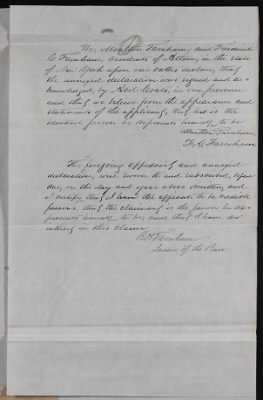 We, Moulton Farnham, and Frederick
C. Farnham, residents of Attica, in the state
of New York upon our oaths declare, that
the annexed declaration was signed and ac-
knowledged by Asel Coats, in our presence
and that we believe from the appearance and
statements of the applicant, that he is the
identical person he represents himself to be
Moulton Farnham
F. C. Farnham
The foregoing affidavit and annexed
declaration, were sworn to and subscribed, before
me, on the day and year above written, and
I certify that I know the affiants to be credible
persons, that the claimant is the person he re-
presents himself to be, and that I have no
interest in this claim
Farnham
Justice of the Peace